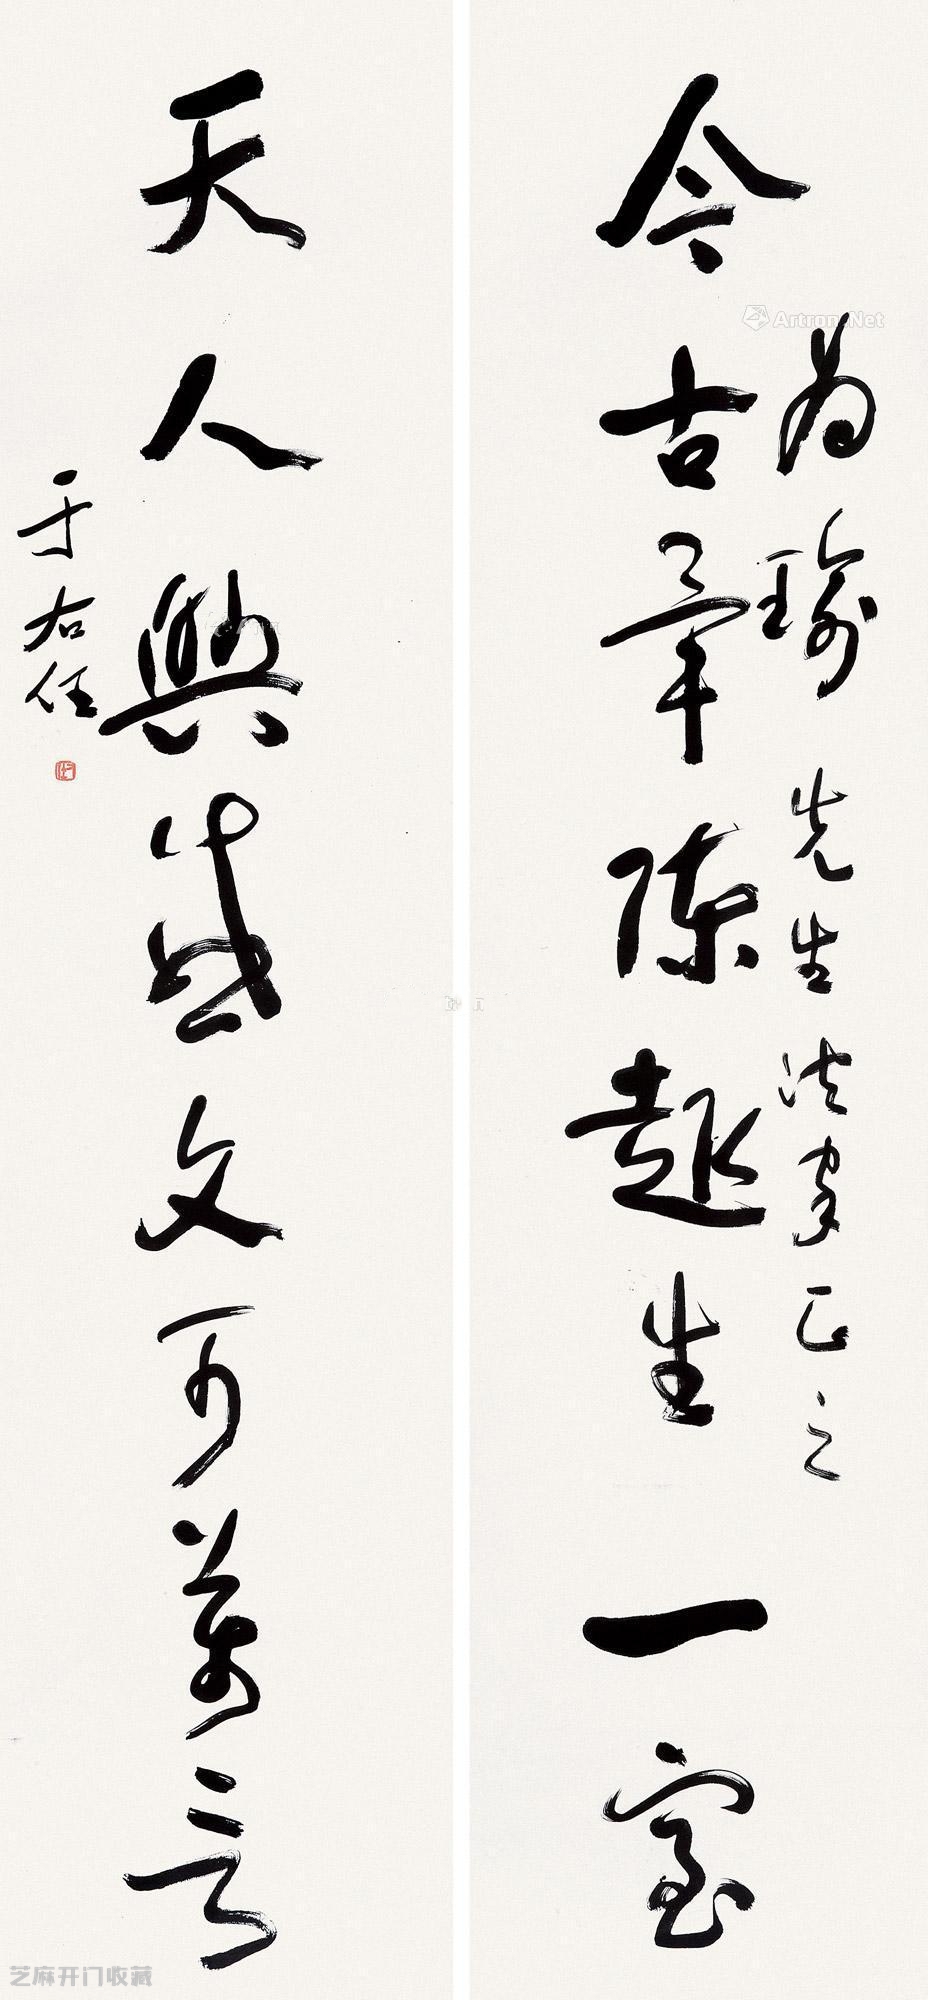 今古羣陳趣生一室
为瑜先生法家正之
天人興感文可萬言
于右任
Artron.Net
芝麻开门收藏